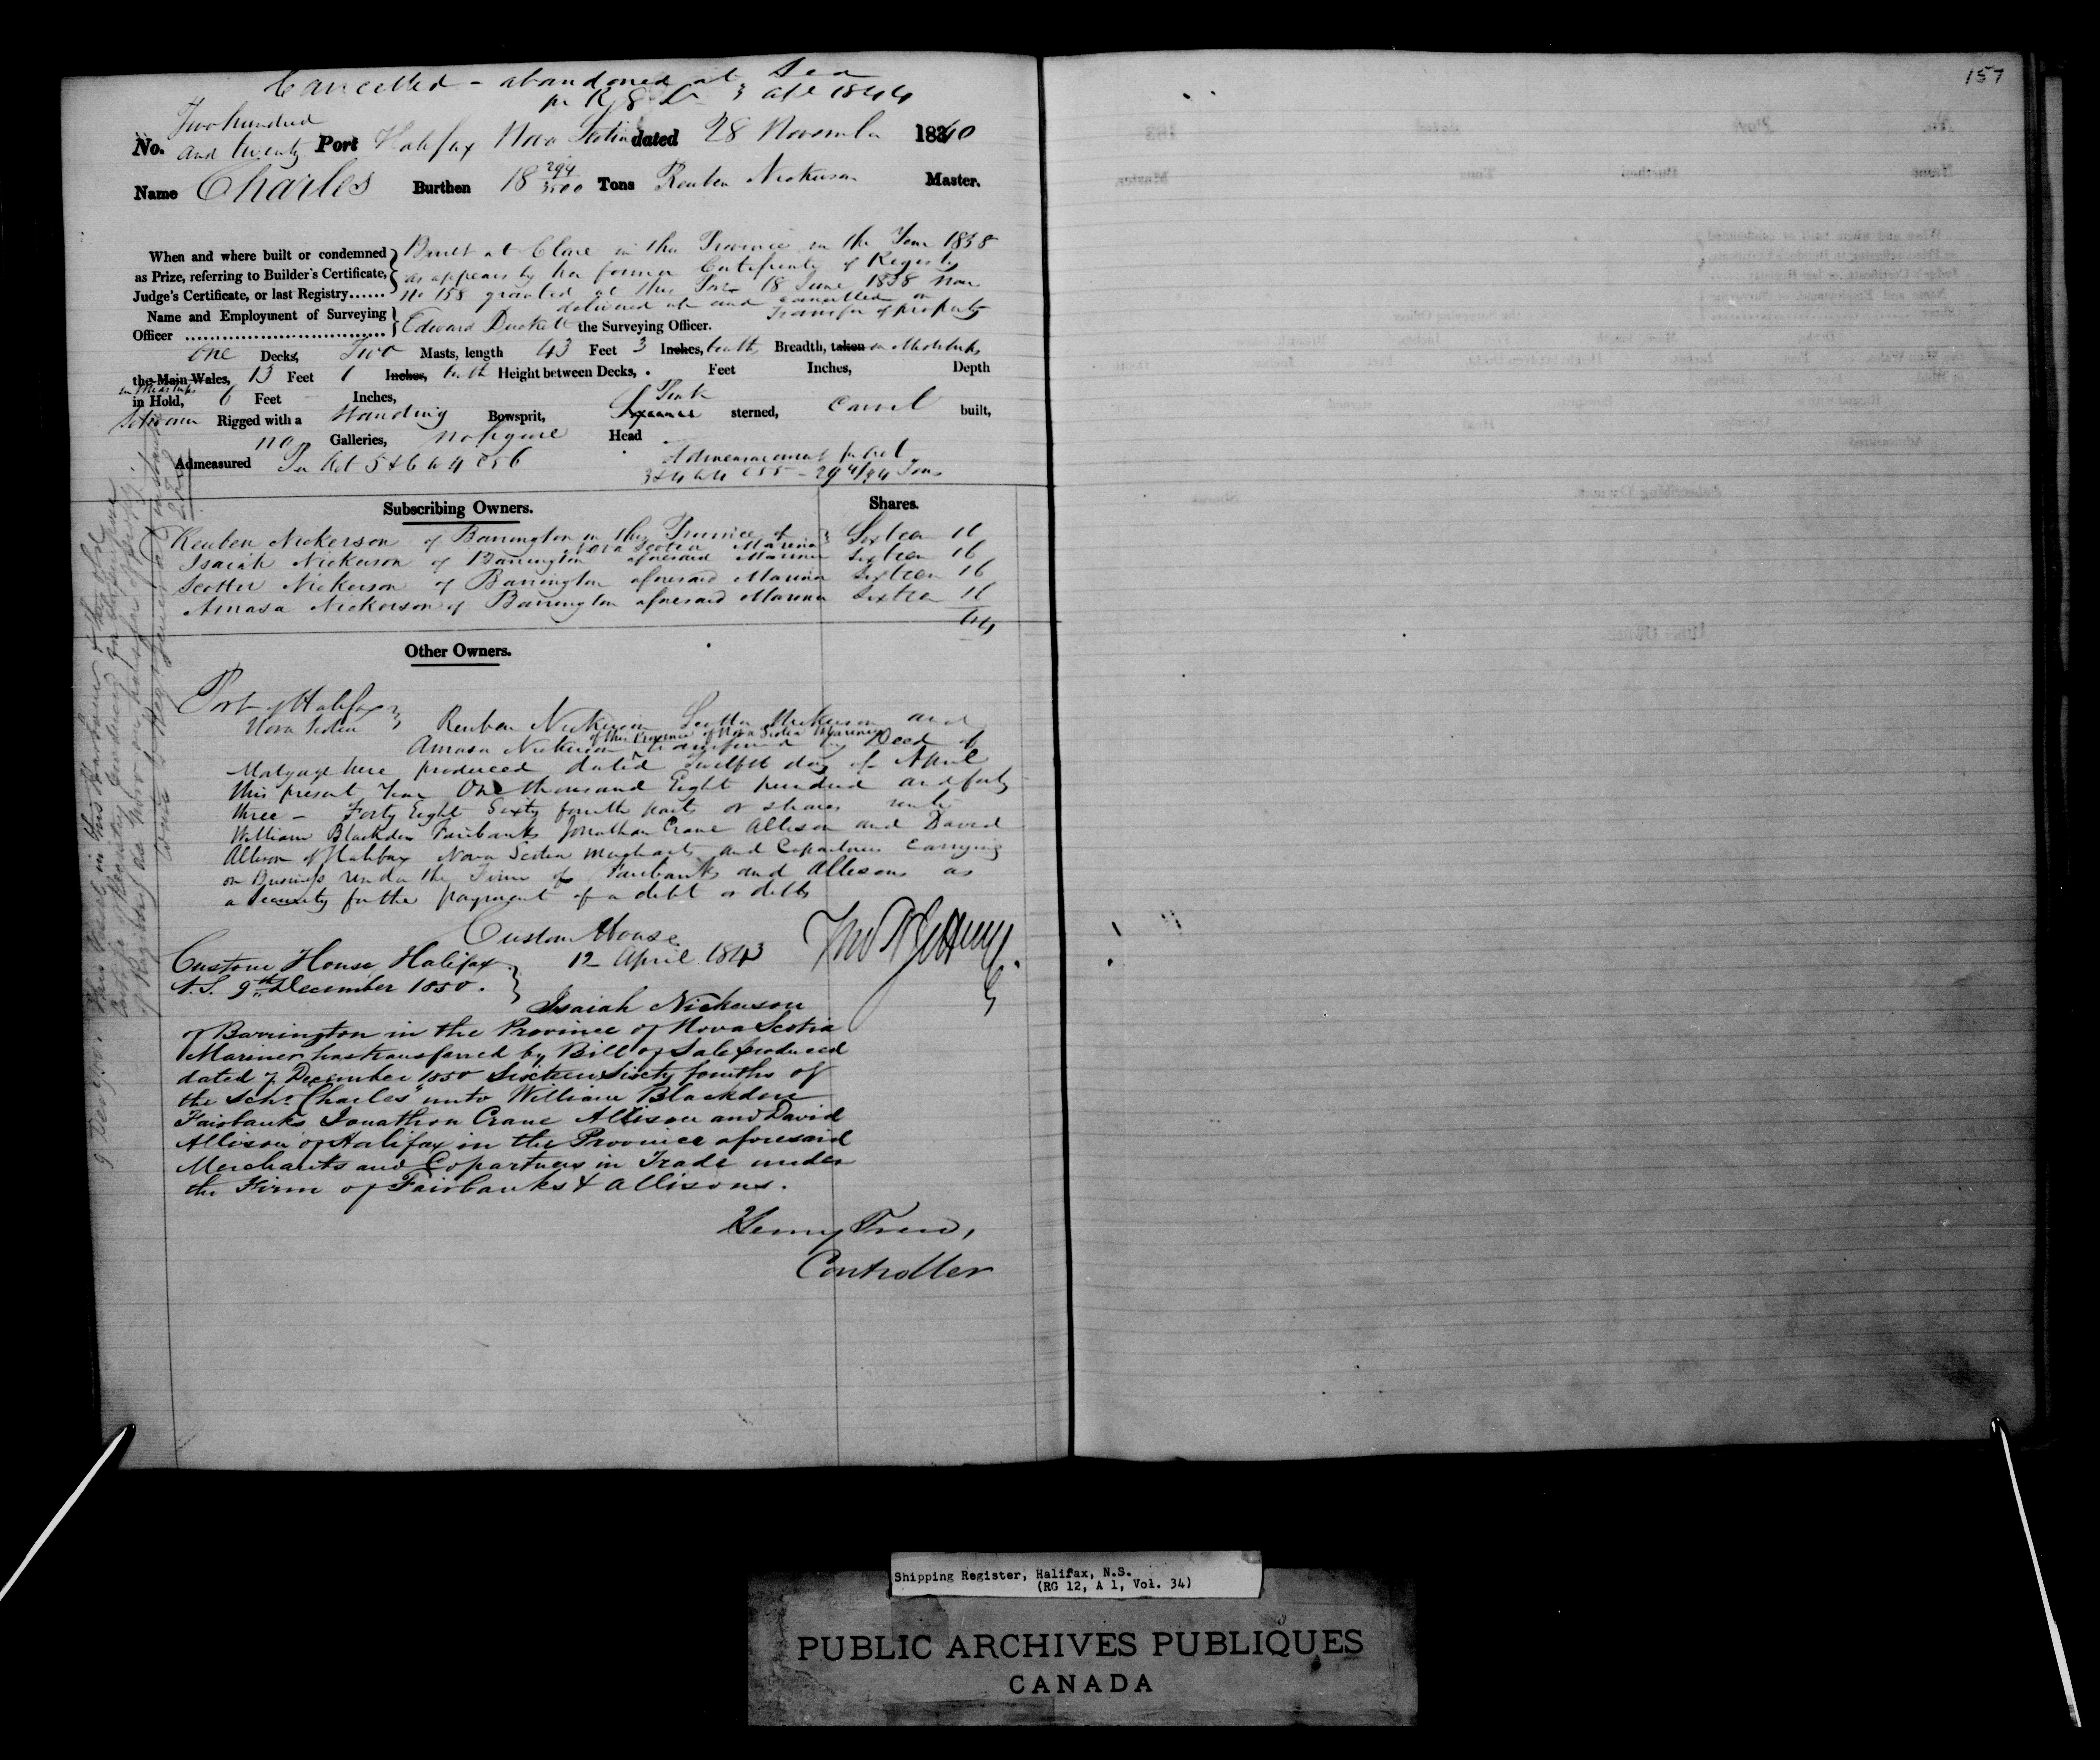 Cancelled - abandoned at Sea
3 1844
157
Two hundred
No. and twenty Port Halifax Nova Scotia dated 28 November 1840
Name Charles Burthen 18 294/3500 Tons Reuben Nickerson Master.
When and where built or condemned Built at Clare in this Province in the Year 1838
as Prize, referring to Builder's Certificate, as appears by her former Certificate of Registry
Judge's Certificate, or last Registry...... No 158 granted at this Port 18 June 1838 now
delivered up and cancelled on
Transfer of property
Name and Employment of Surveying
Officer Edward Duckett the Surveying Officer.
One Decks, Two Masts, length 43 Feet 3 Inches, tenths Breadth, taken in Midships
the Main Wales, 13 Feet 1 Inches, tenth Height between Decks, . Feet Inches, Depth
in Midships
in Hold, 6 Feet Inches, Pink
Schooner Rigged with a Standing Bowsprit, Square sterned, Carvel built,
no Galleries, no figure Head
Admeasured Per Act 5 & 6 W 4 C 56
Admeasurement per Act
3 & 4 W 4 C 55 - 29 4/94 Tons
Subscribing Owners. Shares.
Reuben Nickerson of Barrington in the Province of Sixteen 16
Nova Scotia Mariner
Isaiah Nickerson of Barrington aforesaid Mariner Sixteen 16
Scotter Nickerson of Barrington aforesaid Mariner Sixteen 16
Amasa Nickerson of Barrington aforesaid Mariner Sixteen 16
64
Other Owners.
Port of Halifax
Nova Scotia Reuben Nickerson Nickerson and
of the Province of Nova Scotia Mariners
Amasa Nickerson transferred by Deed of
Mortgage here produced dated Twelfth day of April
this present Year One thousand Eight hundred and forty
three - Forty Eight Sixty fourth parts or shares unto
William Blackden Fairbanks Jonathan Crane Allison and David
Allison of Halifax Nova Scotia Merchants and Copartners carrying
on Business under the Firm of Fairbanks and Allisons as
a Security for the payment of a debt or debts
Custom House
12 April 1843
Custom House Halifax
N.S. 9th December 1850.
Isaiah Nickerson
of Barrington in the Province of Nova Scotia
Mariner has transferred by Bill of Sale produced
dated 7 December 1850 Sixteen Sixty fourths of
the Schr "Charles" unto William Blackden
Fairbanks Jonathan Crane Allison and David
Allison of Halifax in the Province aforesaid
Merchants and Copartners in Trade under
the Firm of Fairbanks & Allisons.
Henry
Controller
Shipping Register, Halifax, N.S.
(RG 12, A 1, Vol. 34)
PUBLIC ARCHIVES PUBLIQUES
CANADA